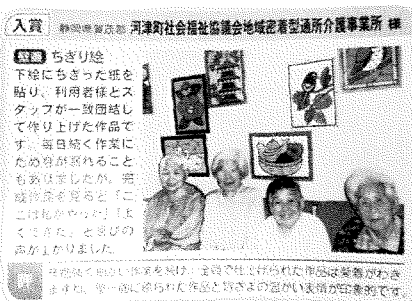 入賞 静岡県賀茂郡 河津町社会福祉協議会地域密着型通所介護事業所 様
壁画 ちぎり絵
下絵にちぎった紙を
貼り、利用者様とス
タッフが一致団結し
て作り上げた作品で
す。毎日続く作業に
ため息が漏れること
もありましたが、完
成作品を見ると「こ
こは私がやった」「よ
くできた」と喜びの
声が上がりました。
細かい作業を続け、全員で仕上げられた作品は栄養がわき
ますね。壁一面に飾られた作品と皆さまの温かい表情が印象的です。